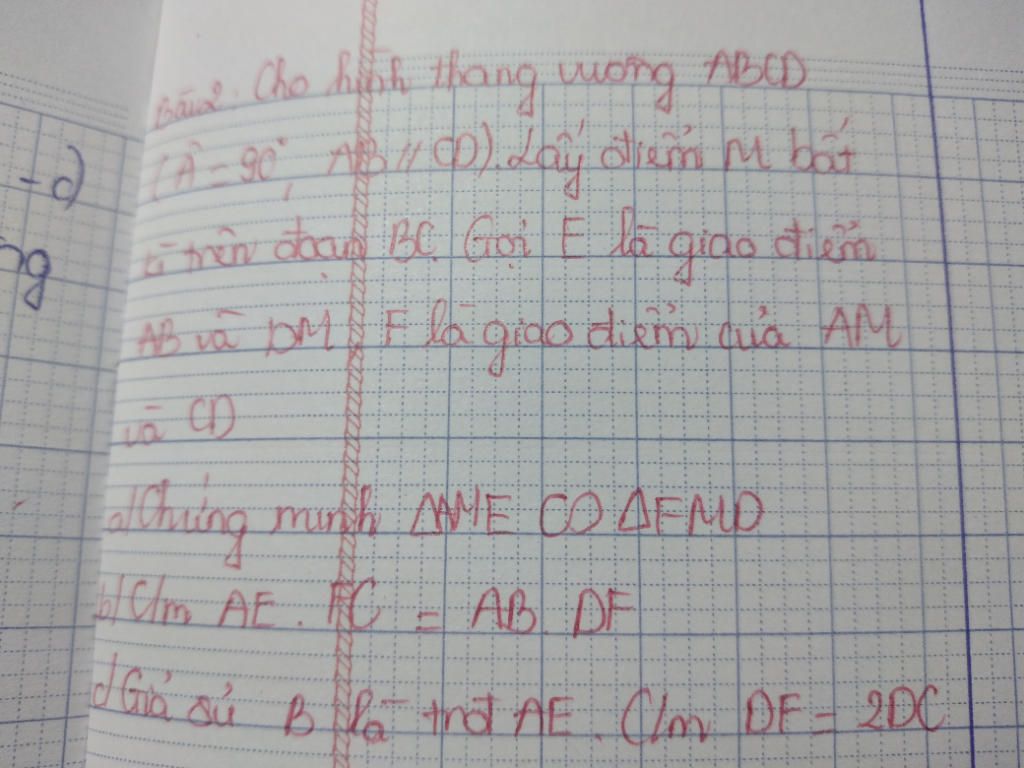 Bài 2. Cho hình thang vuông ABCD
(Â = 90°, AB // CD). Lấy điểm M bất
kì trên đoạn BC. Gọi E là giao điểm
AB và DM F là giao điểm của AM
và CD
a) Chứng minh ΔAME ∽ ΔFMD
b) C/m AE. FC = AB. DF
c) Giả sử B là trđ AE. C/m DF = 2DC
-d)
ng